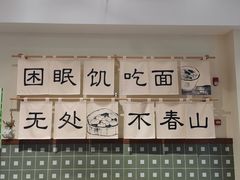 困眠饥吃面
无处不春山